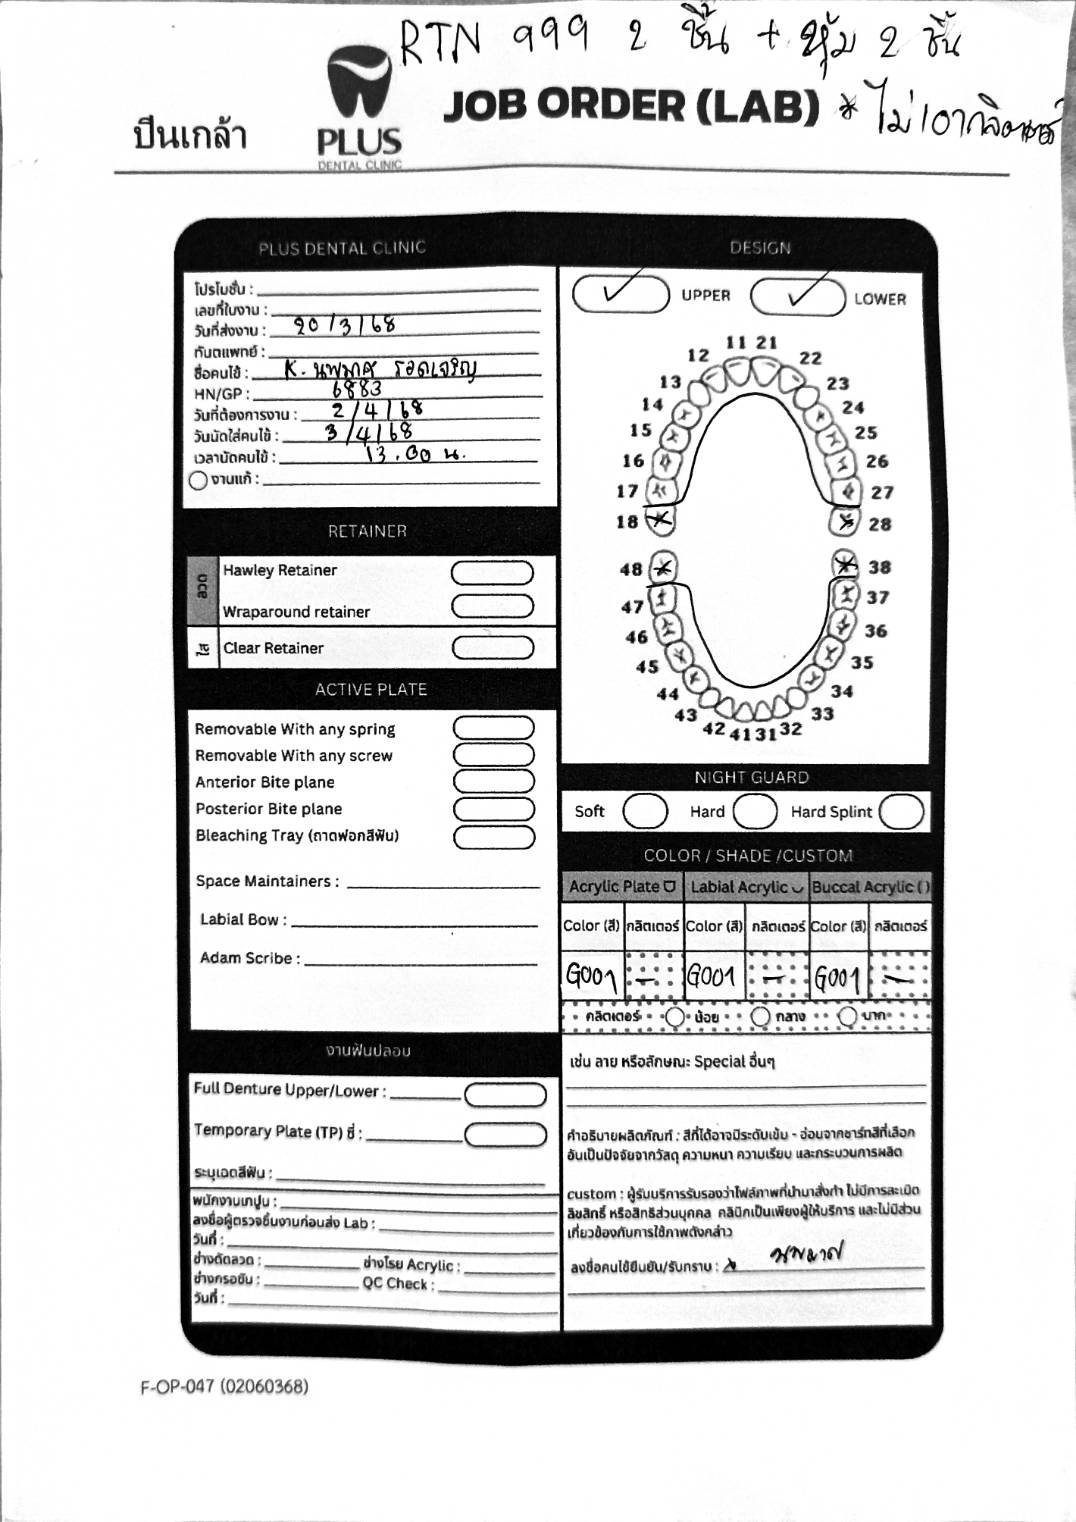 RTN 999 2 ชิ้น + หุ้ม 2 ชิ้น
ปิ่นเกล้า
PLUS
DENTAL CLINIC
JOB ORDER (LAB) * ไม่เอากลิตเตอร์
PLUS DENTAL CLINIC
โปรโมชั่น :
เลขที่ใบงาน :
วันที่ส่งงาน : 20/3/68
ทันตแพทย์ :
ชื่อคนไข้ : K. นพมาศ รอดเจริญ
HN/GP : 6883
วันที่ต้องการงาน : 2/4/68
วันนัดใส่คนไข้ : 3/4/68
เวลานัดคนไข้ : 13.00 น.
งานแก้ :
RETAINER
ลวด
Hawley Retainer
Wraparound retainer
ใส
Clear Retainer
ACTIVE PLATE
Removable With any spring
Removable With any screw
Anterior Bite plane
Posterior Bite plane
Bleaching Tray (ถาดฟอกสีฟัน)
Space Maintainers :
Labial Bow :
Adam Scribe :
งานฟันปลอม
Full Denture Upper/Lower :
Temporary Plate (TP) ซี่ :
ระบุเฉดสีฟัน :
พนักงานเทปูน :
ลงชื่อผู้ตรวจชิ้นงานก่อนส่ง Lab :
วันที่ :
ช่างดัดลวด : ช่างโรย Acrylic :
ช่างกรอขัน : QC Check :
วันที่ :
DESIGN
✓ UPPER ✓ LOWER
11 21
12 22
13 23
14 24
15 25
16 26
17 27
18 28
48 38
47 37
46 36
45 35
44 34
43 33
42 41 31 32
NIGHT GUARD
Soft Hard Hard Splint
COLOR / SHADE /CUSTOM
Acrylic Plate Labial Acrylic Buccal Acrylic ( )
Color (สี) กลิตเตอร์ Color (สี) กลิตเตอร์ Color (สี) กลิตเตอร์
G001 — G001 — G001 —
กลิตเตอร์ น้อย กลาง มาก
เช่น ลาย หรือลักษณะ Special อื่นๆ
คำอธิบายผลิตภัณฑ์ : สีที่ได้อาจมีระดับเข้ม - อ่อนจากชาร์ทสีที่เลือก
อันเป็นปัจจัยจากวัสดุ ความหนา ความเรียบ และกระบวนการผลิต
custom : ผู้รับบริการรับรองว่าไฟล์ภาพที่นำมาสั่งทำ ไม่มีการละเมิด
ลิขสิทธิ์ หรือสิทธิส่วนบุคคล คลินิกเป็นเพียงผู้ให้บริการ และไม่มีส่วน
เกี่ยวข้องกับการใช้ภาพดังกล่าว
ลงชื่อคนไข้ยืนยัน/รับทราบ : x นพมาศ
F-OP-047 (02060368)